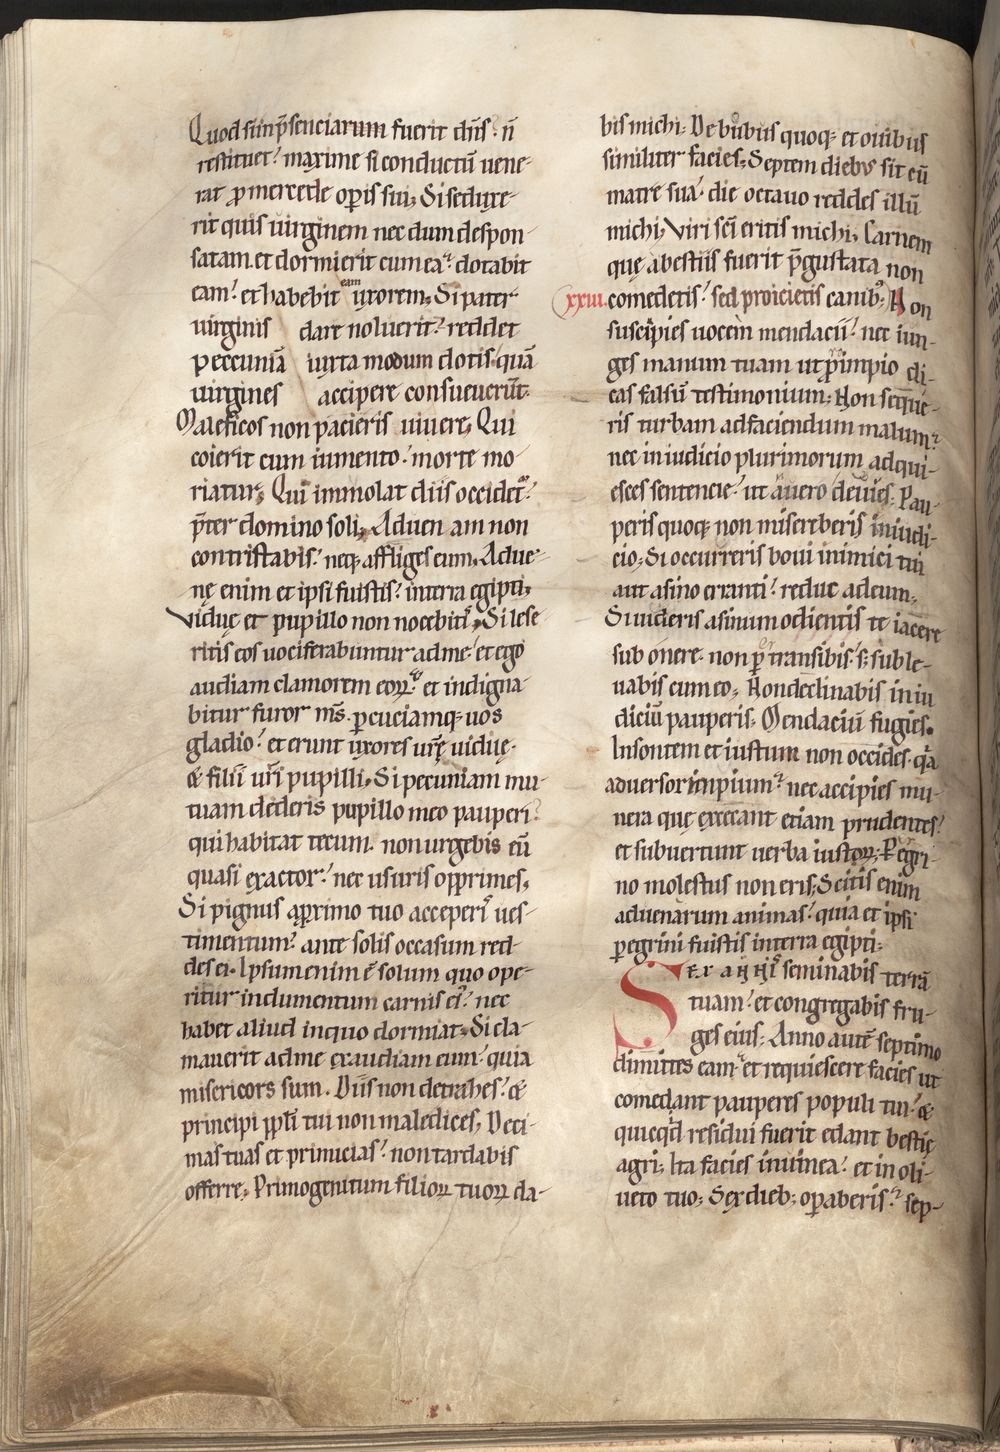 Quod si inp̄senciarum fuerit dn̄s · n̄
restituet? maxime si conductū uene-
rat ꝓ mercede opis sui; Si seduxe-
rit quis uirginem nec dum despon-
satam. et dormierit cum ea? dotabit
eam? et habebit eam uxorem; Si pater
uirginis dare noluerit? reddet
peccuniā iuxta modum dotis. quā
uirgines accipere consueuerūt.
Maleficos non pacieris uiuere; Qui
coierit cum iumento? morte mo-
riatur; Qui immolat diis occidet᷑?
p̄ter domino soli; Aduen am non
contristabis? neq; affliges eum; Adue-
nę enim et ipsi fuistis? interra egipti;
Viduę et pupillo non nocebit᷑; Si lese-
ritis eos uociferabuntur adme? et ego
audiam clamorem eoꝝ? et indigna-
bitur furor ms̄. ꝑcuciamq; uos
gladio? et erunt uxores urę̄ uiduę.
& filii uri pupilli; Si pecuniam mu-
tuam dederis pupillo meo pauperi?
qui habitat tecum. non urgebis eū
quasi exactor? nec usuris opprimes;
Si pignus aꝓximo tuo acceperi᷑ ues-
timentum? ante solis occasum red-
des ei. Ipsum enim ē solum quo ope-
ritur indumentum carnis ei᷑? nec
habet aliud inquo dormiat; Si cla-
mauerit adme exaudiam eum? quia
misericors sum. Diis non detrahes? &
principi ppl̄i tui non maledices; Deci-
mas tuas et primicias? non tardabis
offerre; Primogenitum filioꝝ tuoꝝ da-
bis michi; De bubus quoq; et ouibus
similiter facies; Septem diebus sit cū
matre sua? die octauo reddes illū
michi; Viri sc̄i eritis michi; Carnem
quę abestiis fuerit p̄gustata non
xxiii. comedetis? sed proicietis canib᷒; Non
suscipies uocem mendacii? nec iun-
ges manum tuam ut ꝓ impio di-
cas falsū testimonium; Non seque-
ris turbam adfaciendum malum?
nec in iudicio plurimorum adqui-
esces sentencie? ut a uero deuies; Pau-
peris quoq; non misereberis in iudi-
cio; Si occurreris boui inimici tui
aut asino erranti? reduc adeum;
Si uideris asinum odientis te iacere
sub onere. non ꝑtransibis? s; suble-
uabis cum eo; Non declinabis in iu
diciū pauperis; Mendaciū fugies.
Insontem et iustum non occides. qa
aduersor impium? nec accipies mu-
nera quę excecant etiam prudentes?
et subuertunt uerba iustoꝝ; Pegri-
no molestus non eris; Scitis enim
aduenarum animas? quia et ipsi
ꝑegrini fuistis interra egipti;
SEX ANNI᷑ seminabis terrā
tuam? et congregabis fru-
ges eius; Anno autē septimo
dimittes eam? et requiescere facies ut
comedant pauperes populi tui? &
quicqd residui fuerit edant bestię
agri; Ita facies inuinea? et in oli-
ueto tuo; Sex dieb; oꝑaberis? sep-